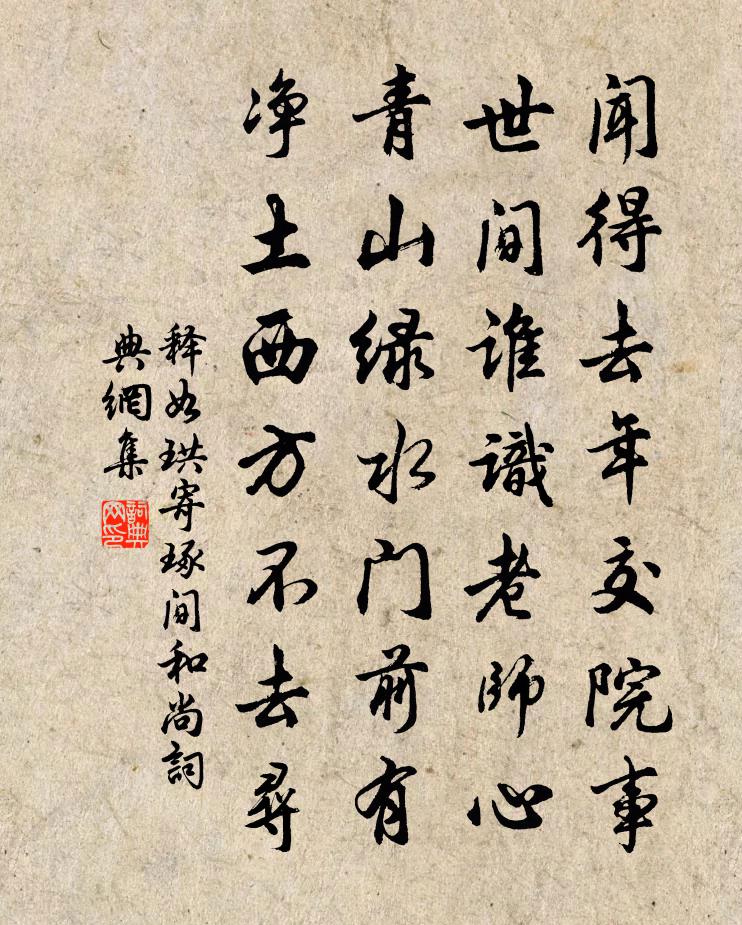 闻得去年交院事
世间谁識老师心
青山绿水门前有
净土西方不去尋
释如珙寄琢间和尚詞
典網集
詞典网印